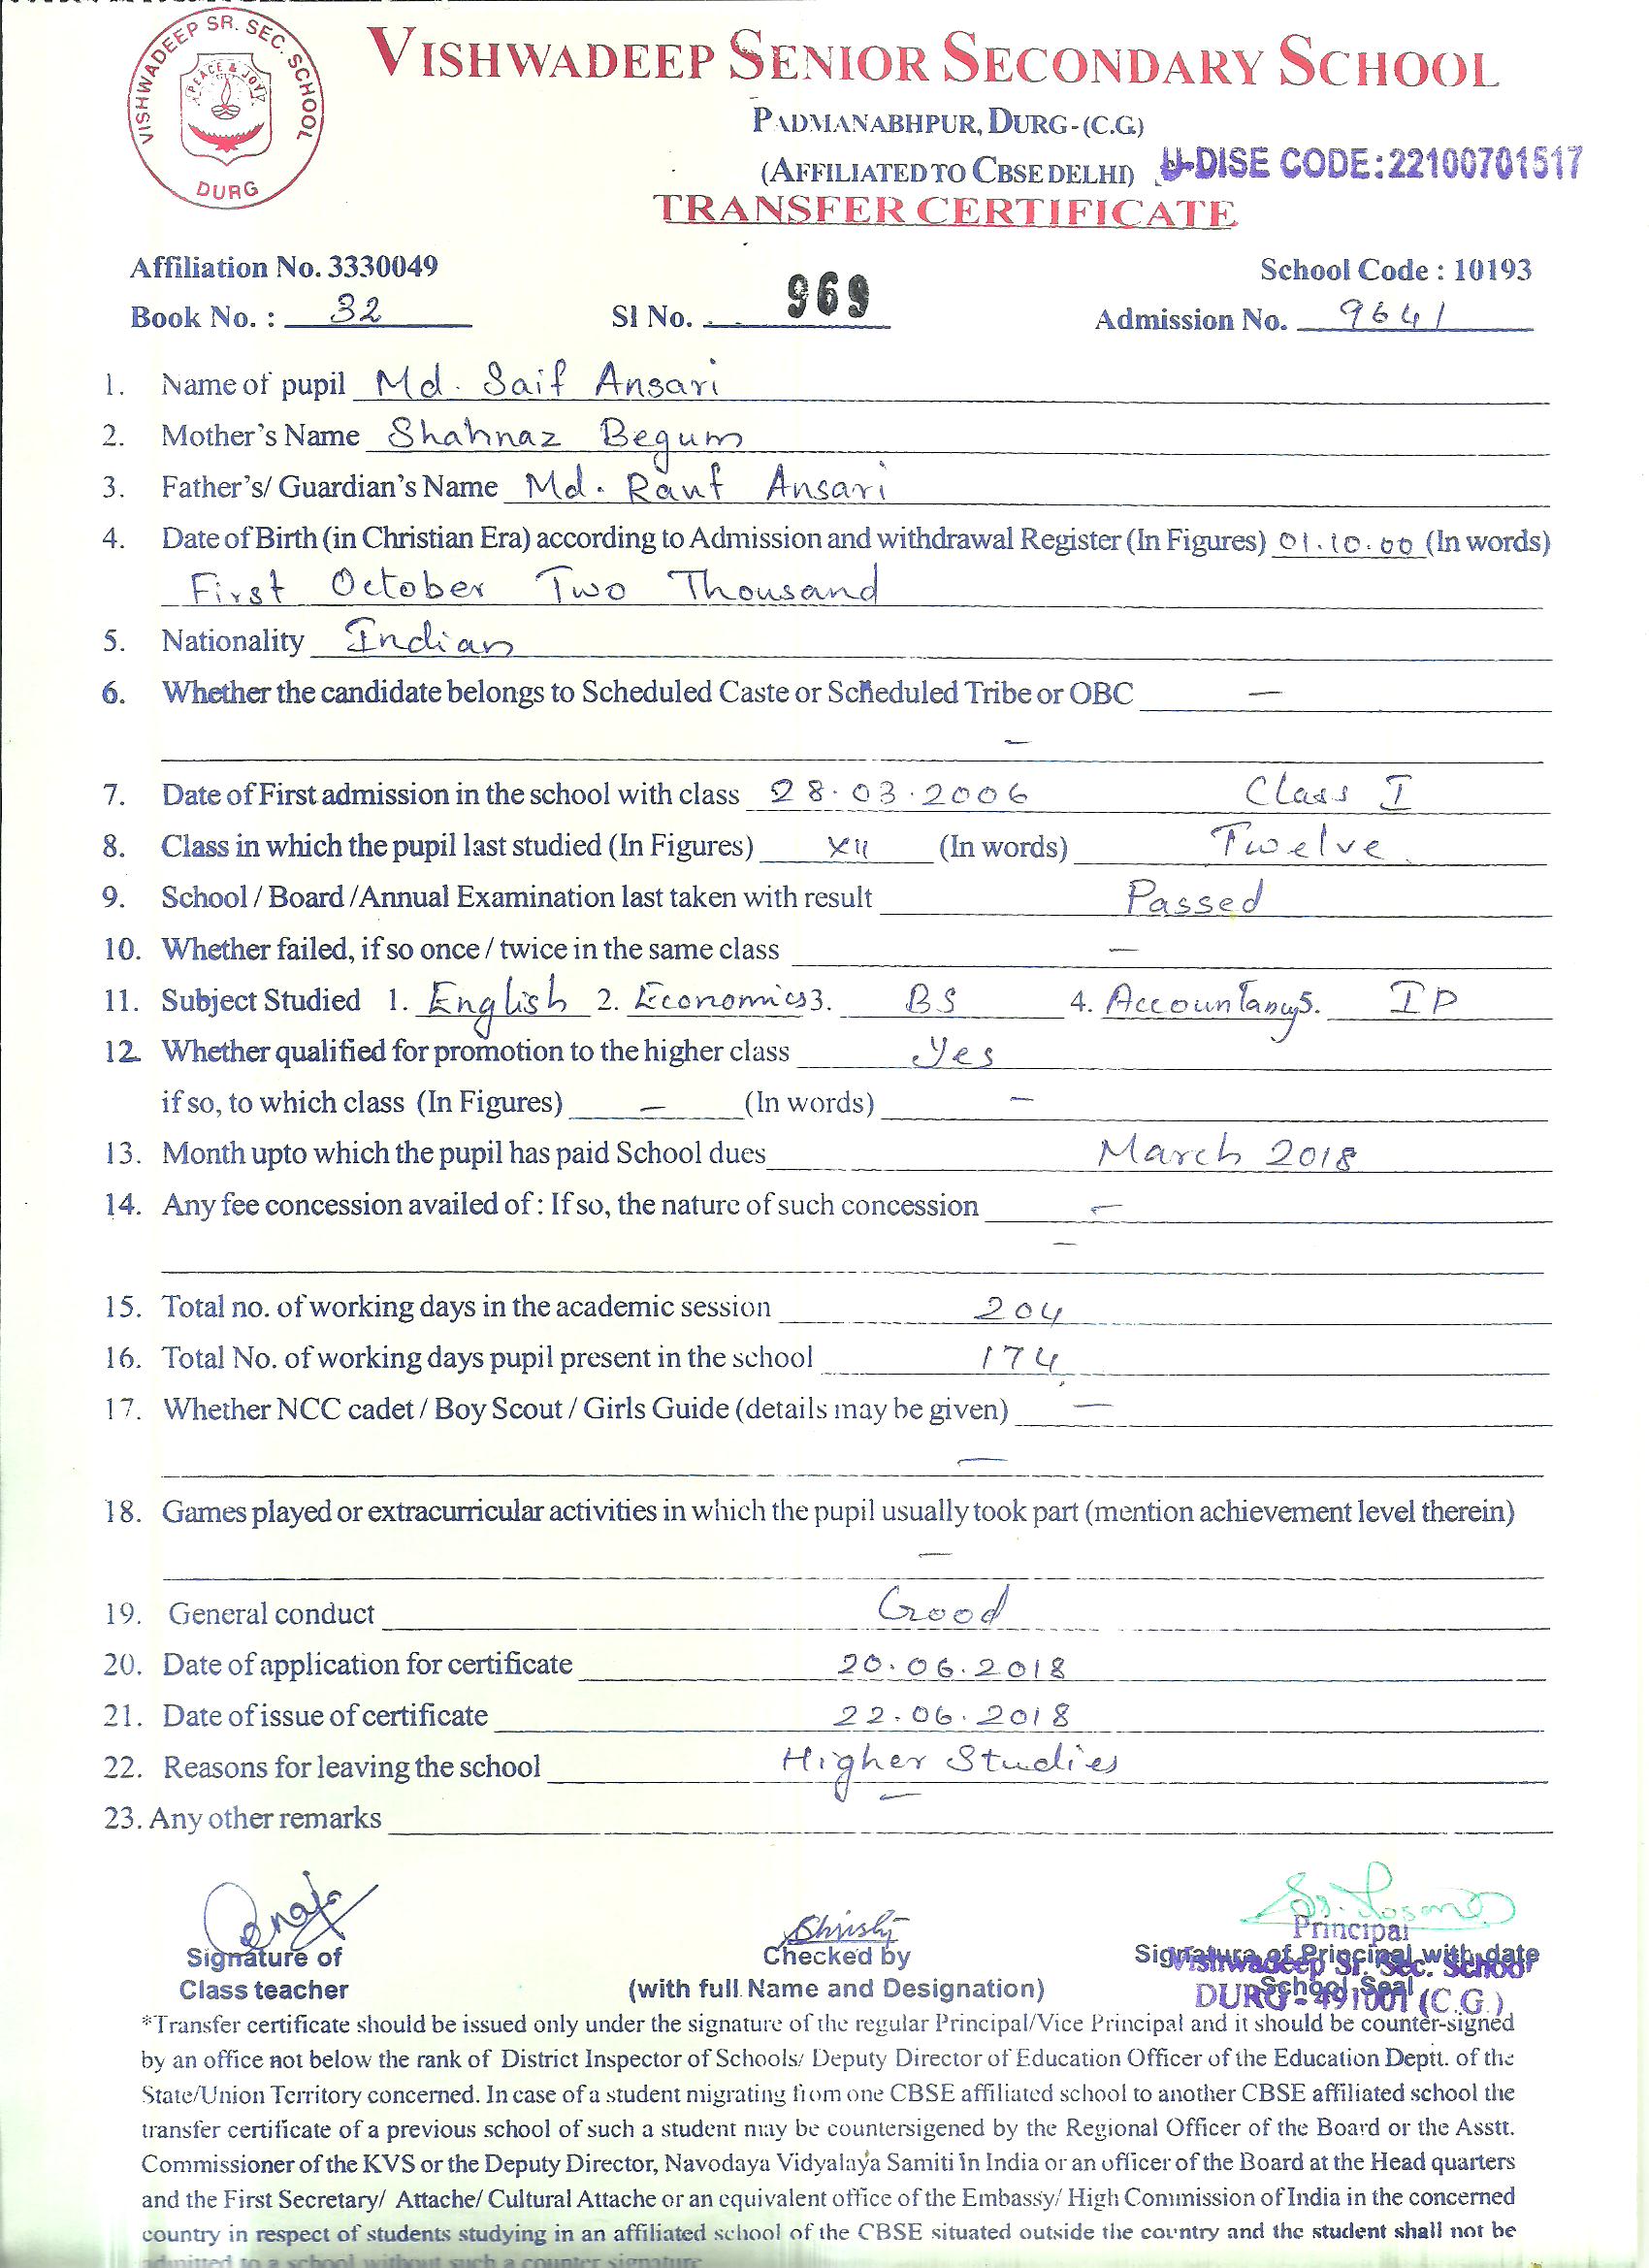 VISHWADEEP SR. SEC. SCHOOL
PEACE & JOY
DURG
VISHWADEEP SENIOR SECONDARY SCHOOL
PADMANABHPUR, DURG-(C.G.)
(AFFILIATED TO CBSE DELHI) U-DISE CODE:22100701517
TRANSFER CERTIFICATE
Affiliation No. 3330049 School Code : 10193
Book No. : 32 Sl No. 969 Admission No. 9641
1. Name of pupil Md. Saif Ansari
2. Mother's Name Shahnaz Begum
3. Father's/ Guardian's Name Md. Rauf Ansari
4. Date of Birth (in Christian Era) according to Admission and withdrawal Register (In Figures) 01.10.00 (In words)
First October Two Thousand
5. Nationality Indian
6. Whether the candidate belongs to Scheduled Caste or Scheduled Tribe or OBC —
—
7. Date of First admission in the school with class 28.03.2006 Class I
8. Class in which the pupil last studied (In Figures) XII (In words) Twelve
9. School / Board /Annual Examination last taken with result Passed
10. Whether failed, if so once / twice in the same class —
11. Subject Studied 1. English 2. Economics 3. BS 4. Accountancy 5. IP
12. Whether qualified for promotion to the higher class Yes
if so, to which class (In Figures) — (In words) —
13. Month upto which the pupil has paid School dues March 2018
14. Any fee concession availed of : If so, the nature of such concession —
—
15. Total no. of working days in the academic session 204
16. Total No. of working days pupil present in the school 174
17. Whether NCC cadet / Boy Scout / Girls Guide (details may be given) —
—
18. Games played or extracurricular activities in which the pupil usually took part (mention achievement level therein)
—
19. General conduct Good
20. Date of application for certificate 20.06.2018
21. Date of issue of certificate 22.06.2018
22. Reasons for leaving the school Higher Studies
23. Any other remarks —
Principal
Signature of Checked by Signature of Principal with date
Vishwadeep Sr. Sec. School
Class teacher (with full Name and Designation) School Seal
DURG - 491001 (C.G.)
*Transfer certificate should be issued only under the signature of the regular Principal/Vice Principal and it should be counter-signed
by an office not below the rank of District Inspector of Schools/ Deputy Director of Education Officer of the Education Deptt. of the
State/Union Territory concerned. In case of a student migrating from one CBSE affiliated school to another CBSE affiliated school the
transfer certificate of a previous school of such a student may be countersigned by the Regional Officer of the Board or the Asstt.
Commissioner of the KVS or the Deputy Director, Navodaya Vidyalaya Samiti in India or an officer of the Board at the Head quarters
and the First Secretary/ Attache/ Cultural Attache or an equivalent office of the Embassy/ High Commission of India in the concerned
country in respect of students studying in an affiliated school of the CBSE situated outside the country and the student shall not be
admitted to a school without such a counter signature